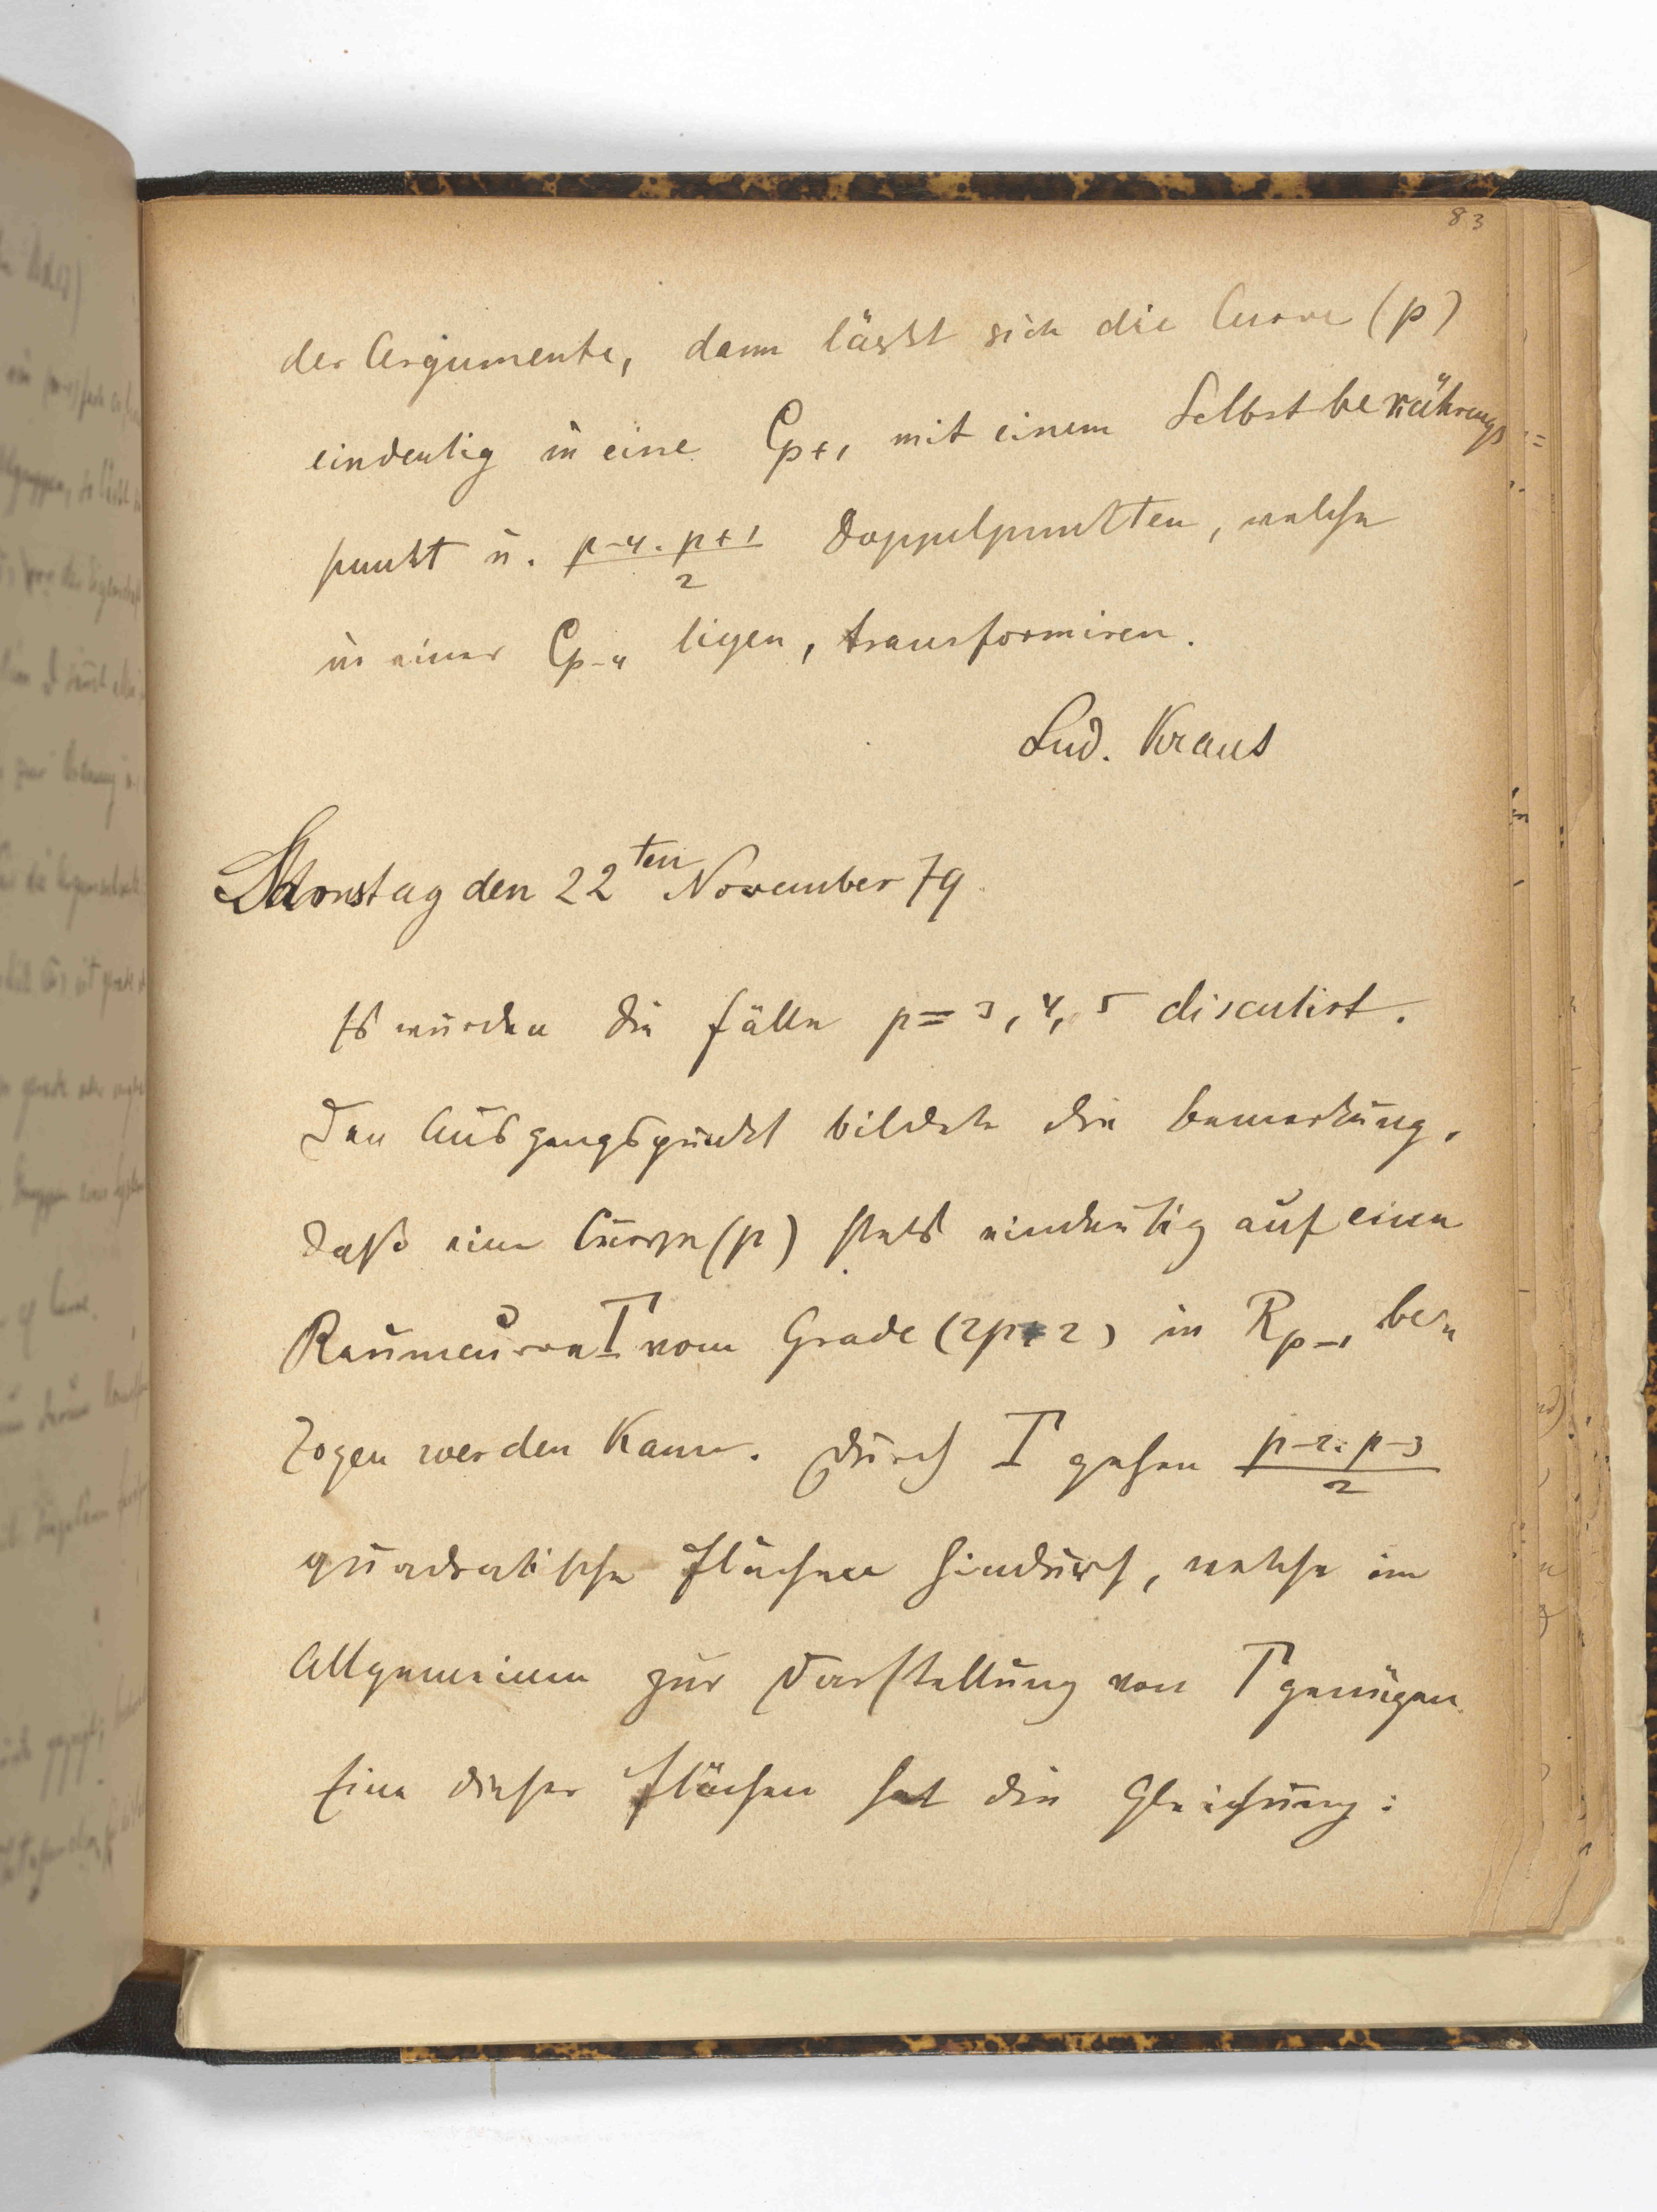 83
der Argumente, dann lässt sich die Curve (p)
eindeutig in eine C_{p+1} mit einem Selbstberührungs=
punkt u. \frac{p-4 . p+1}{2} Doppelpunkten, welche
in einer C_{p-4} ligen, transformiren.
Lud. Kraus
Samstag den 22^{ten} November 79
Es wurden die Fälle p = 3, 4, 5 discutirt.
Den Ausgangspunkt bildete die Bemerkung,
daß eine Curve (p) stets eindeutig auf eine
Raumcurve Γ vom Grade (2p-2) in R_{p-1} be=
zogen werden kann. Durch Γ gehen \frac{p-2 . p-3}{2}
quadratische Flächen hindurch, welche im
Allgemeinen zur Darstellung von Γ genügen.
Eine dieser Flächen hat die Gleichung: